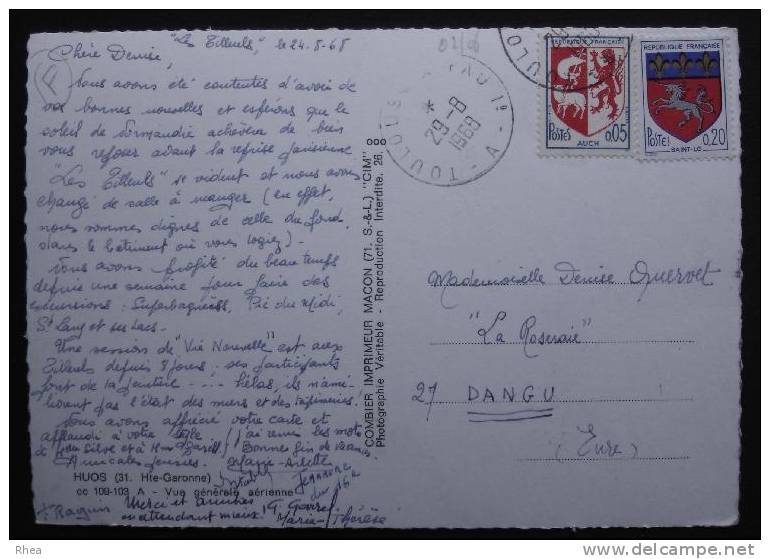 "Les Tilleuls", le 24-8-68
Chère Denise,
Nous avons été contentes d'avoir de
vos bonnes nouvelles et espérons que le
soleil de Normandie achèvera de bien
vous refaire avant la reprise parisienne
"Les Tilleuls" se vident et nous avons
changé de salle à manger (en effet,
nous sommes dignes de celle du fond,
dans le bâtiment où vous logiez)-
Nous avons profité du beau temps
depuis une semaine pour faire des
excursions: Superbagnères, Pic du Midi,
St Lary et ses lacs.
Une session de "Vie Nouvelle" est aux
Tilleuls depuis 8 jours; ses participants
font de la peinture - - - - hélas, ils n'amé-
liorent pas l'état des murs et des tapisseries!
Nous avons apprécié votre carte et
applaudi à votre J'ai remis les mots
de et à Mme Bonnes fin de vacances
Amicales pensées. Marie-Arlette
HUOS (31. Hte-Garonne)
cc 109-103 A - Vue générale aérienne
Merci et amitiés
en attendant mieux! G.
Marie-Thérèse
COMBIER IMPRIMEUR MACON (71. S.-&-L.) "CIM"
Photographie Véritable - Reproduction Interdite. 26.
TOULOUSE
29-8
1968
REPUBLIQUE FRANÇAISE
POSTES 0,05
AUCH
REPUBLIQUE FRANÇAISE
POSTES 0,20
SAINT-LO
Mademoiselle Denise Quervet
"La Roseraie"
27 DANGU
(Eure)
Rhea
delcampe.net